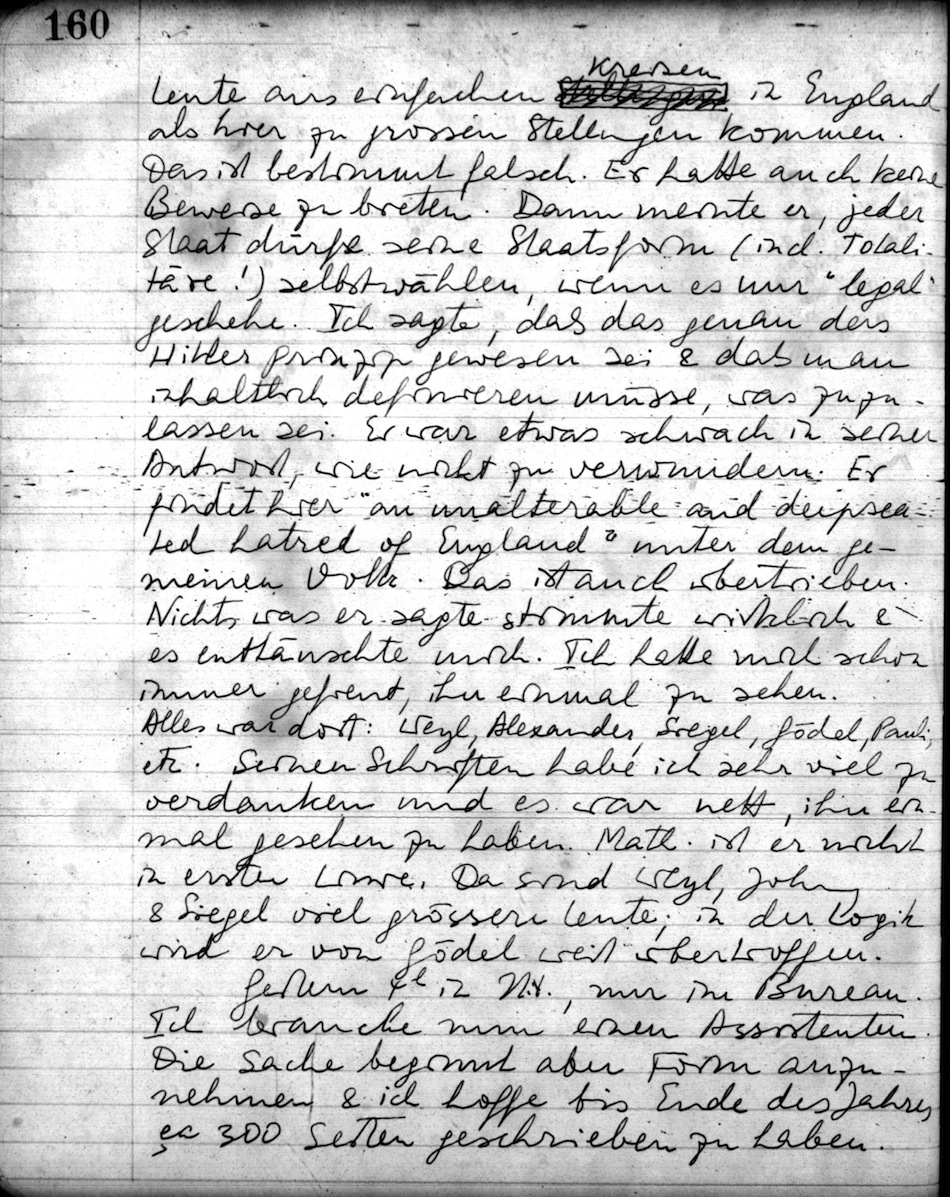 160
Kreisen
Leute aus einfachen in England
als hier zu grossen Stellungen kommen.
Das ist bestimmt falsch. Er hatte auch keine
Beweise zu bieten. Dann meinte er, jeder
Staat dürfe seine Staatsform (incl. Totali-
täre!) selbst wählen, wenn es nur "legal"
geschehe. Ich sagte, dass das genau
Hitler Prinzip gewesen sei & dass man
inhaltlich definieren müsse, was zuzu-
lassen sei. Er war etwas schwach in seiner
Antwort, wie nicht zu verwundern. Er
findet hier "an unalterable and deepsea-
ted hatred of England" unter dem ge-
meinen Volk. Das ist auch übertrieben.
Nichts was er sagte stimmte wirklich &
es enttäuschte mich. Ich hatte mich schon
immer gefreut, ihn einmal zu sehen.
Alles war dort: Weyl, Alexander, Siegel, Gödel, Pauli,
etc. Seinen Schriften habe ich sehr viel zu
verdanken und es war nett, ihn ein-
mal gesehen zu haben. Math. ist er nicht
in erster Linie. Da sind Weyl, Johnny
& Siegel viel grössere Leute; in der Logik
wird er von Gödel weit übertroffen.
Gestern in N.Y., nur im Bureau.
Ich brauche nun einen Assistenten.
Die Sache beginnt aber Form anzu-
nehmen & ich hoffe bis Ende des Jahres
ca 300 Seiten geschrieben zu haben.